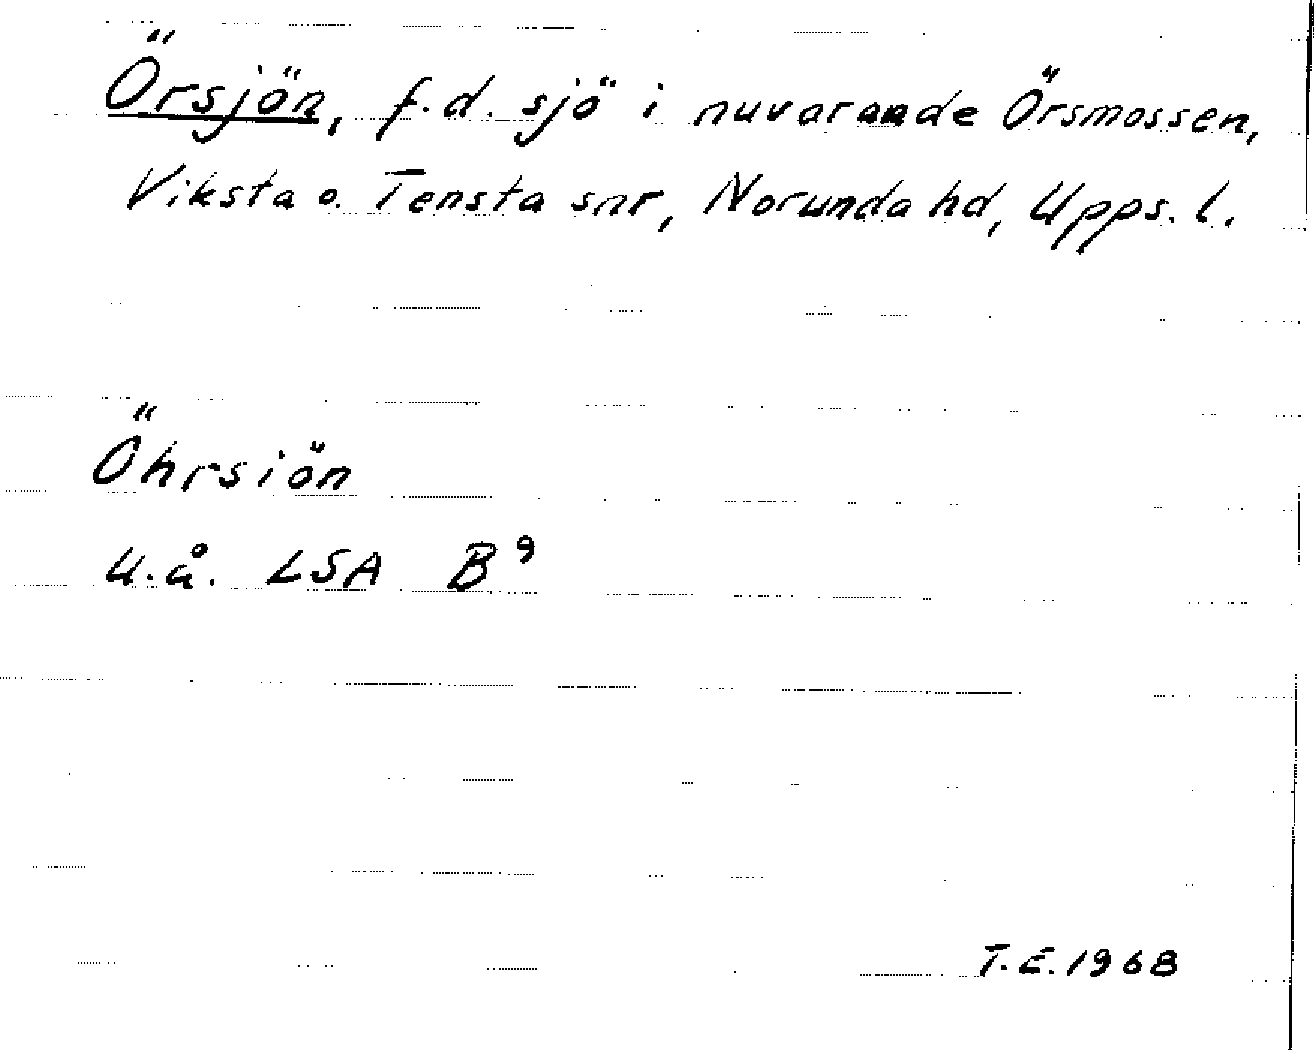 Örsjön, f.d. sjö i nuvarande Örsmossen,
Viksta o. Tensta snr, Norunda hd, Upps. l.
Öhrsiön
u.å. LSA B⁹
T.E. 1968